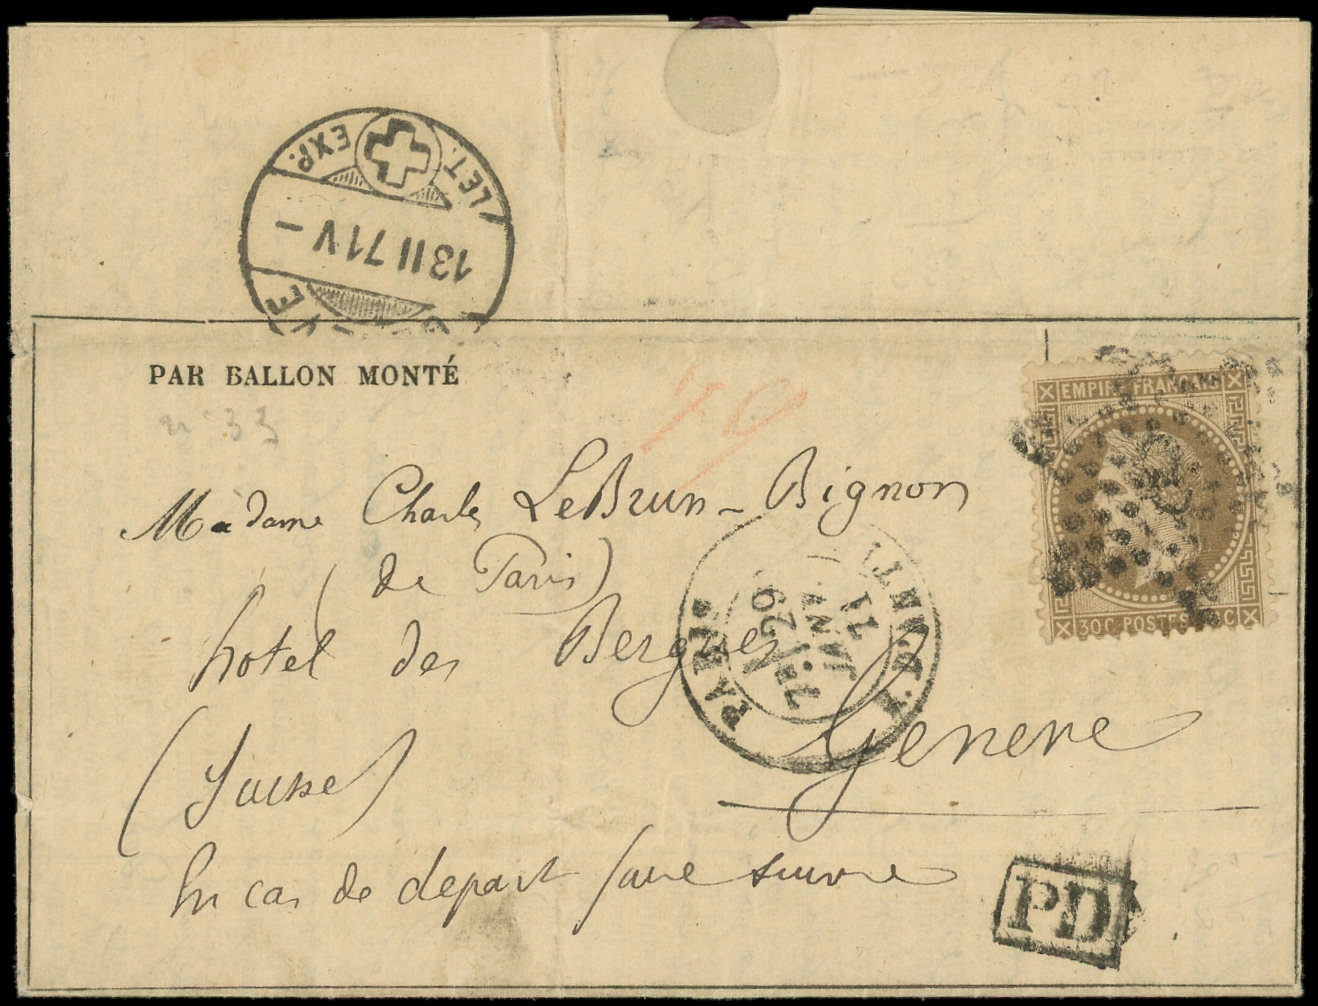 LET. EXP.
13 II 71 V –
PAR BALLON MONTÉ
n° 33
79
EMPIRE FRANÇAIS
Madame Charles LeBrun-Bignon
(de Paris)
hotel des Bergues
Geneve
(Suisse)
En cas de depart faire suivre
PARIS
29
JANV.
71
30C POSTES 30C
PD